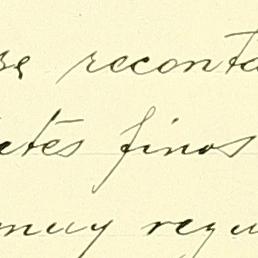 se reconta
etes finos
muy regu